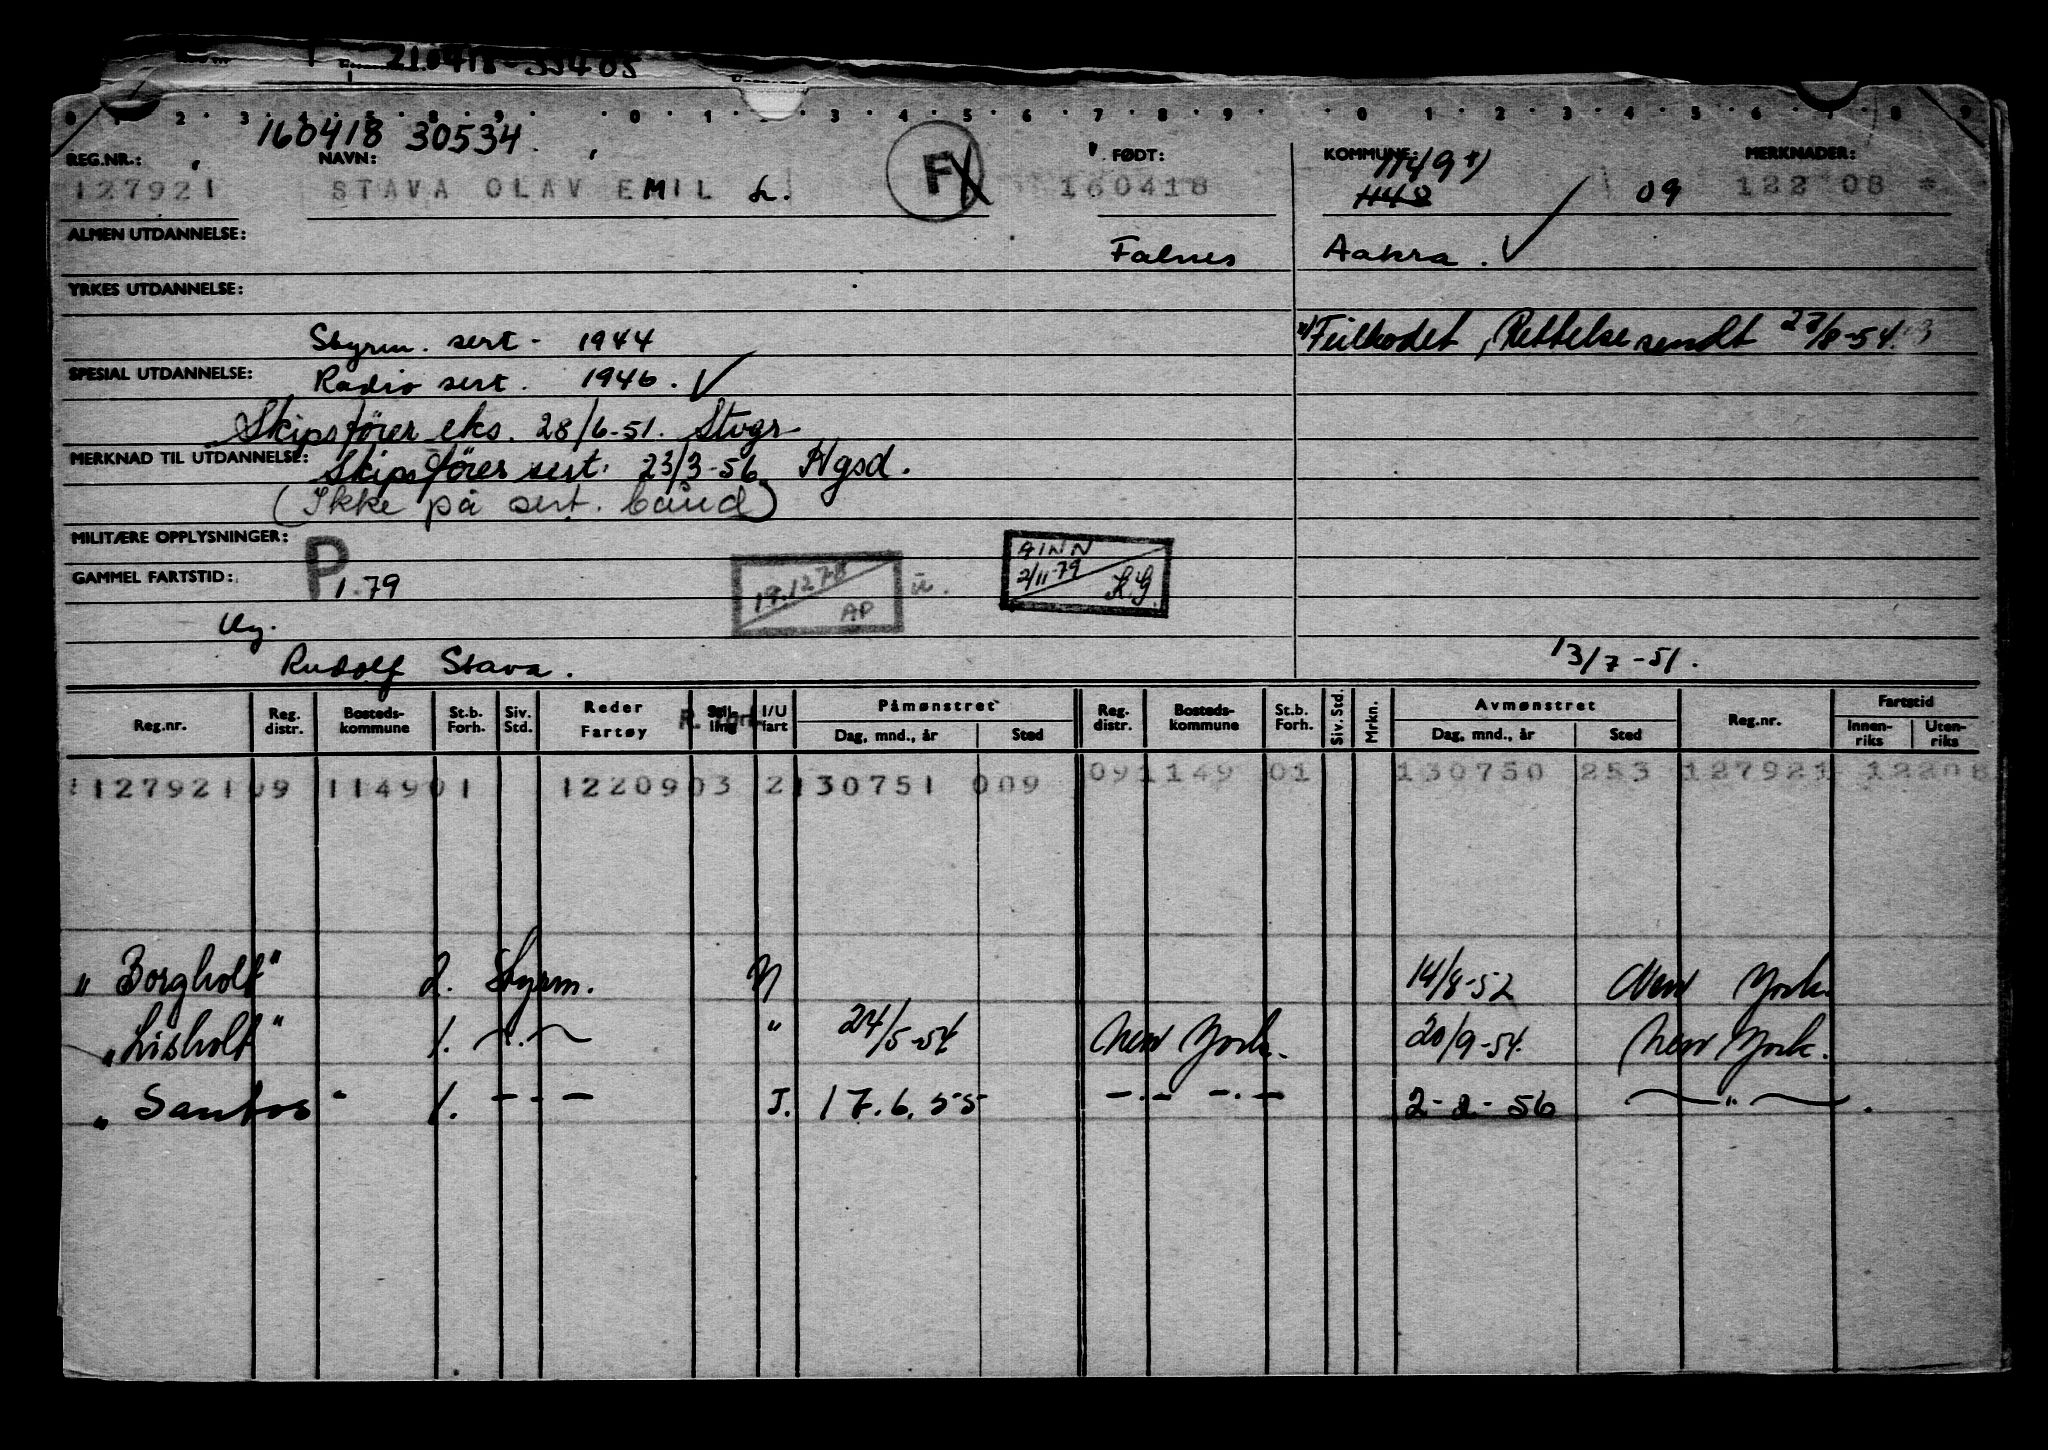 0 1 2 3 4 5 8 9 0 1 3 4 5 6 7 8 9 0 1 2 4 5 6 7 8 9
160418 30534
REG.NR.: NAVN: FØDT: KOMMUNE: 1149 x) MERKNADER:
127921 STAVA OLAV EMIL L. F 160418 1148 09 122 08 *
ALMEN UTDANNELSE: Falnes Aakra.
YRKES UTDANNELSE:
Styrm. sert - 1944 x) Feilkodet, Rettelse sendt 27/8-54.
SPESIAL UTDANNELSE: Radio sert. 1946.
Skipsfører eks. 28/6-51. Stvgr
MERKNAD TIL UTDANNELSE: Skipsfører sert. 23/3-56 Hgsd.
(Ikke på sert. bånd)
MILITÆRE OPPLYSNINGER: P
GAMMEL FARTSTID: 1.79 AP 2/11-79 K.G.
Ug.
Rudolf Stava. 13/7-51.
Reg.nr. Reg. distr. Bosteds-kommune St.b. Forh. Siv. Std. Reder Fartøy I/U fart Påmønstret Dag, mnd., år Sted Reg. distr. Bosteds-kommune St.b. Forh. Siv. Std. Mrkn. Avmønstret Dag, mnd., år Sted Reg.nr. Fartstid Innen-riks Uten-riks
127921 09 1149 01 1220903 2 130751 009 09 1149 01 130750 253 127921 12208
"Borgholt" 2. Styrm. U 14/8-52 New York.
"Lisholt" 1. — " — " 24/5-54 New York. 20/9-54. New York.
"Santos" 1. - - - J. 17.6.55 -.- -.- 2-2-56 — " —.